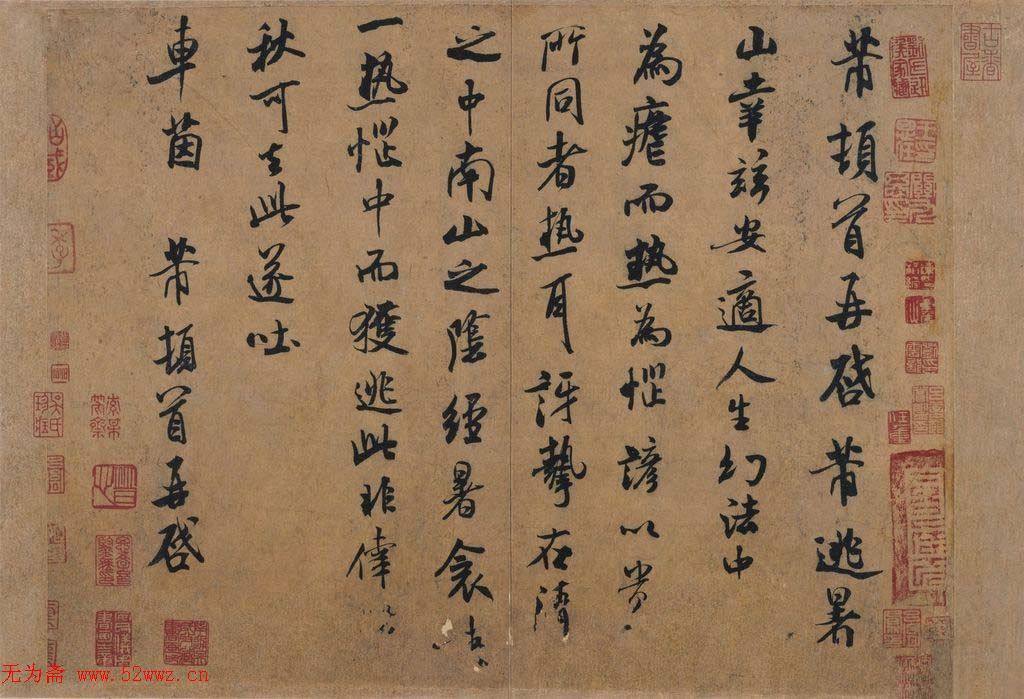 芾頓首再啓芾逃暑
山幸兹安適人生幻法中
為虐而熱為惱諺以貴
所同者熱耳訝挈在清
之中南山之陰經暑衾
一熱惱中而獲逃此非倖
秋可去此遂吐
車茵 芾頓首再啓
无为斋 www.52wwz.cn